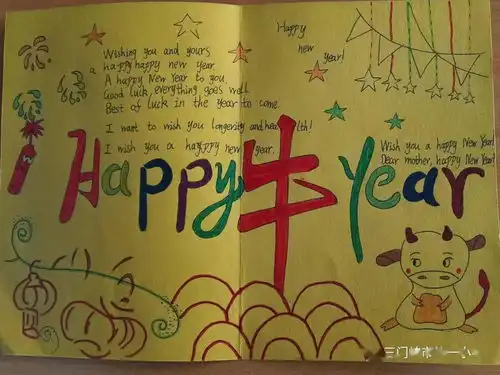 Happy
new
year!
Wishing you and yours
a happy happy new year
A happy New Year to you.
Good luck, everything goes well.
Best of luck in the year to come.
I want to wish you longevity and health!
I wish you a happy new year.
Wish you a happy New Year!
Dear mother, happy New Year!
Happy 牛 Year
三门峡市